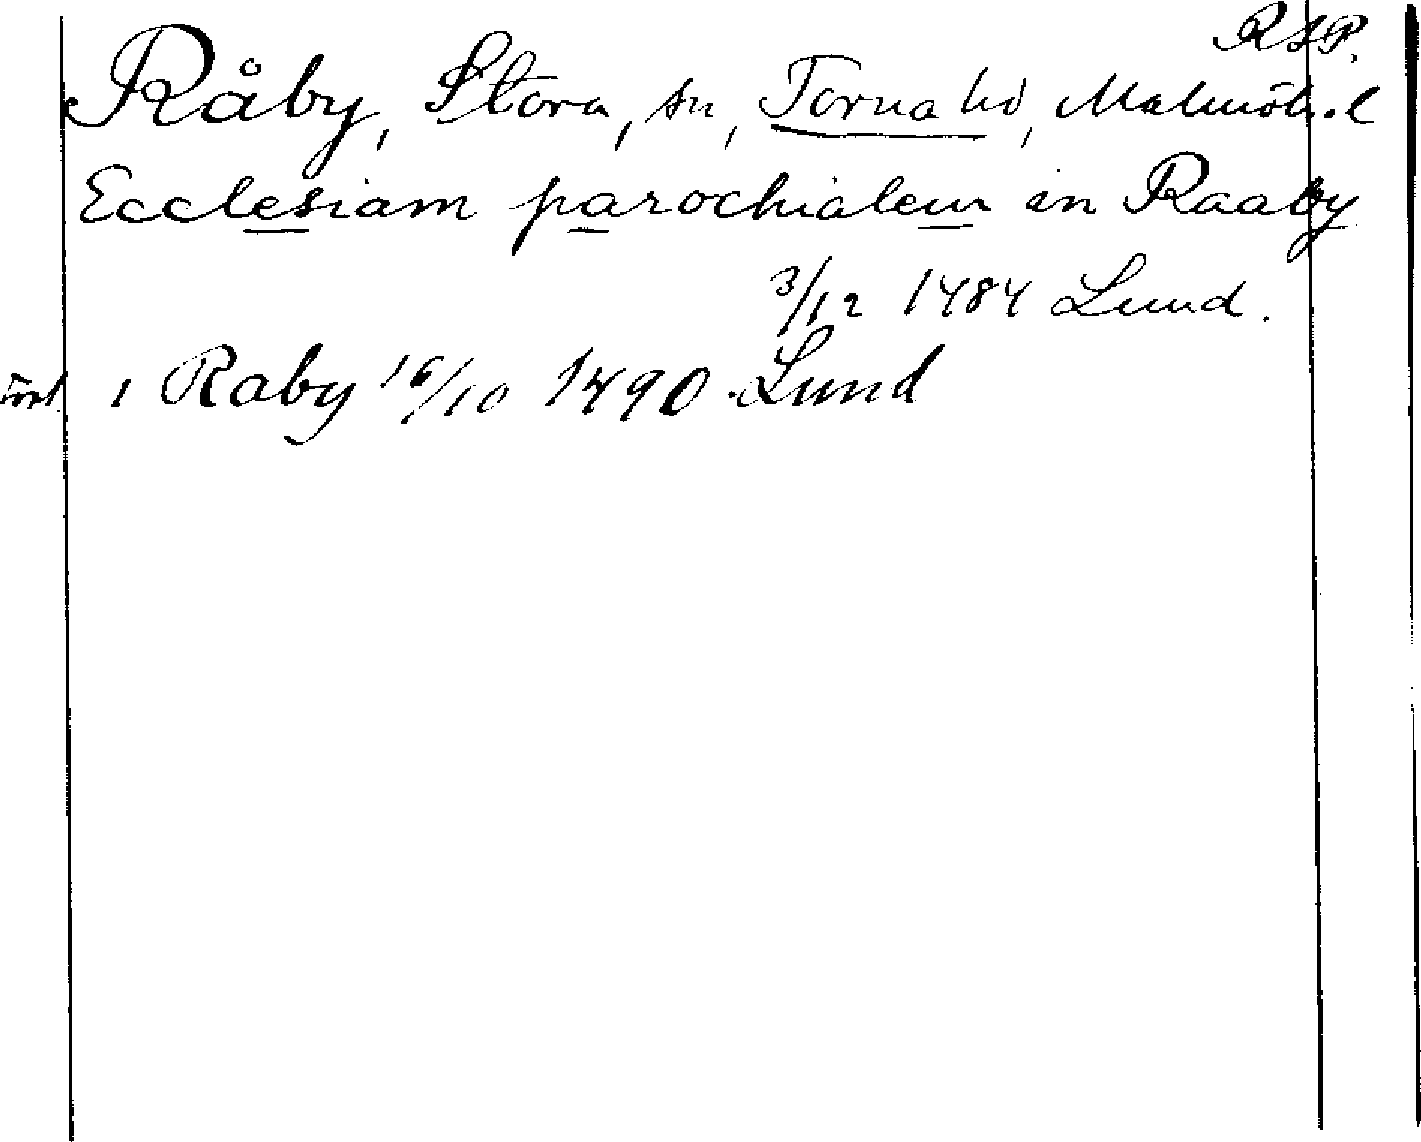 RSP.
Råby, Stora, sn, Torna hd, Malmöh. l
Ecclesiam parochialem in Raaby
3/12 1484 Lund.
i Raby 16/10 1490 Lund